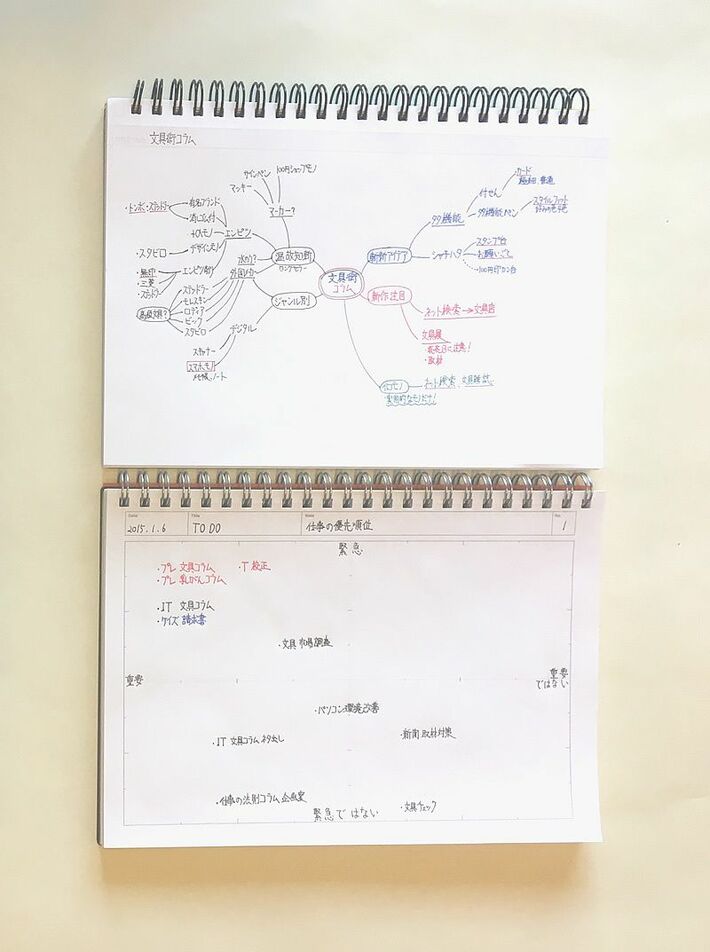 文具術コラム
100円ショップモノ
サインペン
マッキー
マーカー？
有名ブランド
消しゴム付
エンピツ
デザインモノ
・スタビロ
温故知新
ロングセラー
水のり？
外国メーカー
エンピツ削り
・無印
・三菱
高級文具？
スタビロ
モレスキン
ロディア
ジャンル別
デジタル
スキャナー
スマホモノ
メモ帳、ノート
文具術
コラム
斬新アイデア
多機能
付せん
・カード
多機能ペン
スタイルフィット
シャチハタ
スタンプ台
お願いごと
・100円印カン台
新作注目
ネット検索→文具店
文具展
・発売日に注意！
・取材
ネット検索、文具雑誌
・実用的なモノだけ！
Date
2015.1.6
Title
TO DO
Note
仕事の優先順位
No.
1
緊急
・プレ 文具コラム
・T 校正
・プレ 乳がんコラム
・IT 文具コラム
・ケイズ 請求書
・文具 市場調査
重要
重要
ではない
・パソコン環境改善
・IT 文具コラム ネタ出し
・新聞 取材対策
・仕事の法則コラム 企画案
緊急ではない
・文具チェック